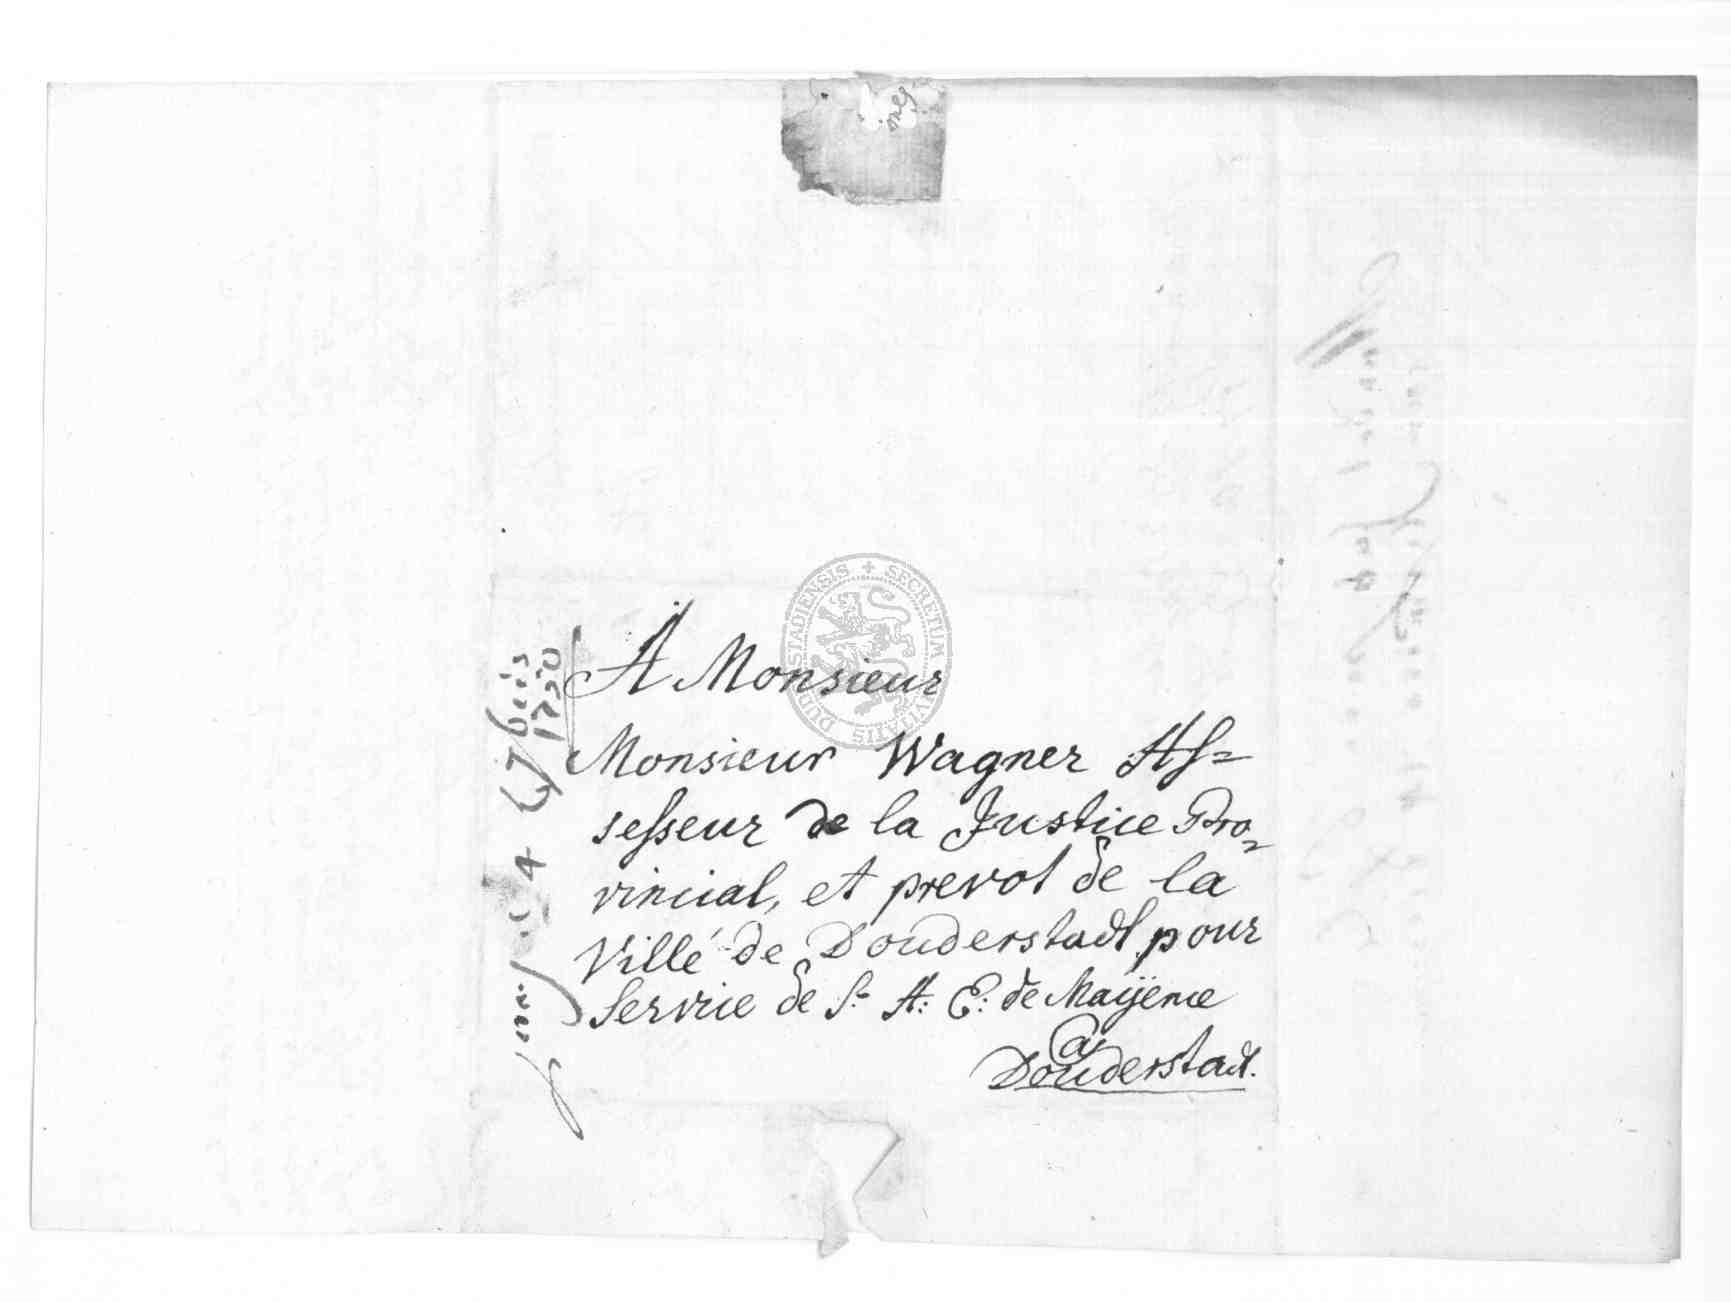 A Monsieur
Monsieur Wagner As=
sesseur de la Justice Pro=
vincial, et prevot de la
Villé de Douderstadt pour
Service de S: A: E: de Maÿence
a
Douderstadt.
4 7bris
1750
SECRETUM CIVITATIS DUDERSTADIENSIS